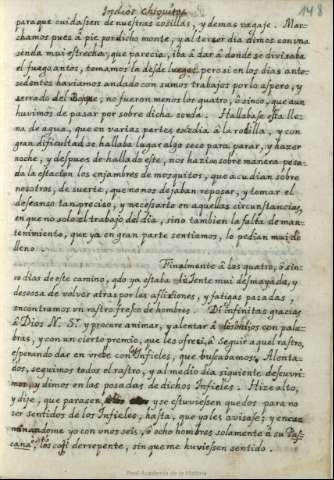 Indios Chiquitos
148
para que cuidassen de nuestras cosillas, y demas vagaje. Mar-
chamos pues à pie por dicho monte, y al tercer dia dimos con vna
senda mui estrecha, que parecia, iba à dar à donde se divisaba
el fuego antes, tomamos la desde luego: pero si en los dias ante-
sedentes haviamos andado con sumos trabajos por lo aspero, y
serrado del Boque, no fueron menos los quatro, ô sinco, que aun
huvimos de pasar por sobre dicha senda. Hallabase esta lle-
na de agua, que en varias partes exsedia à la rodilla, y con
gran dificultad se hallaba lugar algo seco para parar, y hazer
noche, y despues de hallado este, nos hazian sobre manera pesa-
da la estacion los enjambres de mosquitos, que acudian sobre
nosotros, de suerte, que no nos dejaban reposar, y tomar el
descanso tan preciso, y necessario en aquellas circunstancias,
en que no solo el trabajo del dia, sino tambien la falta de man-
tenimiento, que ya en gran parte sentiamos, lo pedian mui de
lleno.
Finalmente à los quatro, ô sin-
co dias de este camino, qdo ya estaba la Jente mui desmayada, y
deseosa de volver atras por las aflictiones, y fatigas pasadas,
encontramos vn rastro fresco de hombres. Di infinitas gracias
à Dios N. Sr. y procure animar, y alentar à los hijos con pala-
bras, y con un cierto premio, que les ofreci, à seguir aquel rastro,
esperando dar en vrebe con los Infieles, que buscabamos. Alenta-
dos, seguimos todos el rastro, y al medio dia siguiente descubri-
mos, y dimos en las posadas de dichos Infieles. Hize alto,
y dije, que parasen, y se estuviessen quedos para no
ser sentidos de los Infieles, hasta, que yo les avisase; y encaz
minandome yo con vnos seis, ô ocho hombres solamente à su Pas-
cana, los cogi derrepente, sin que me huviessen sentido.
Real Academia de la Historia